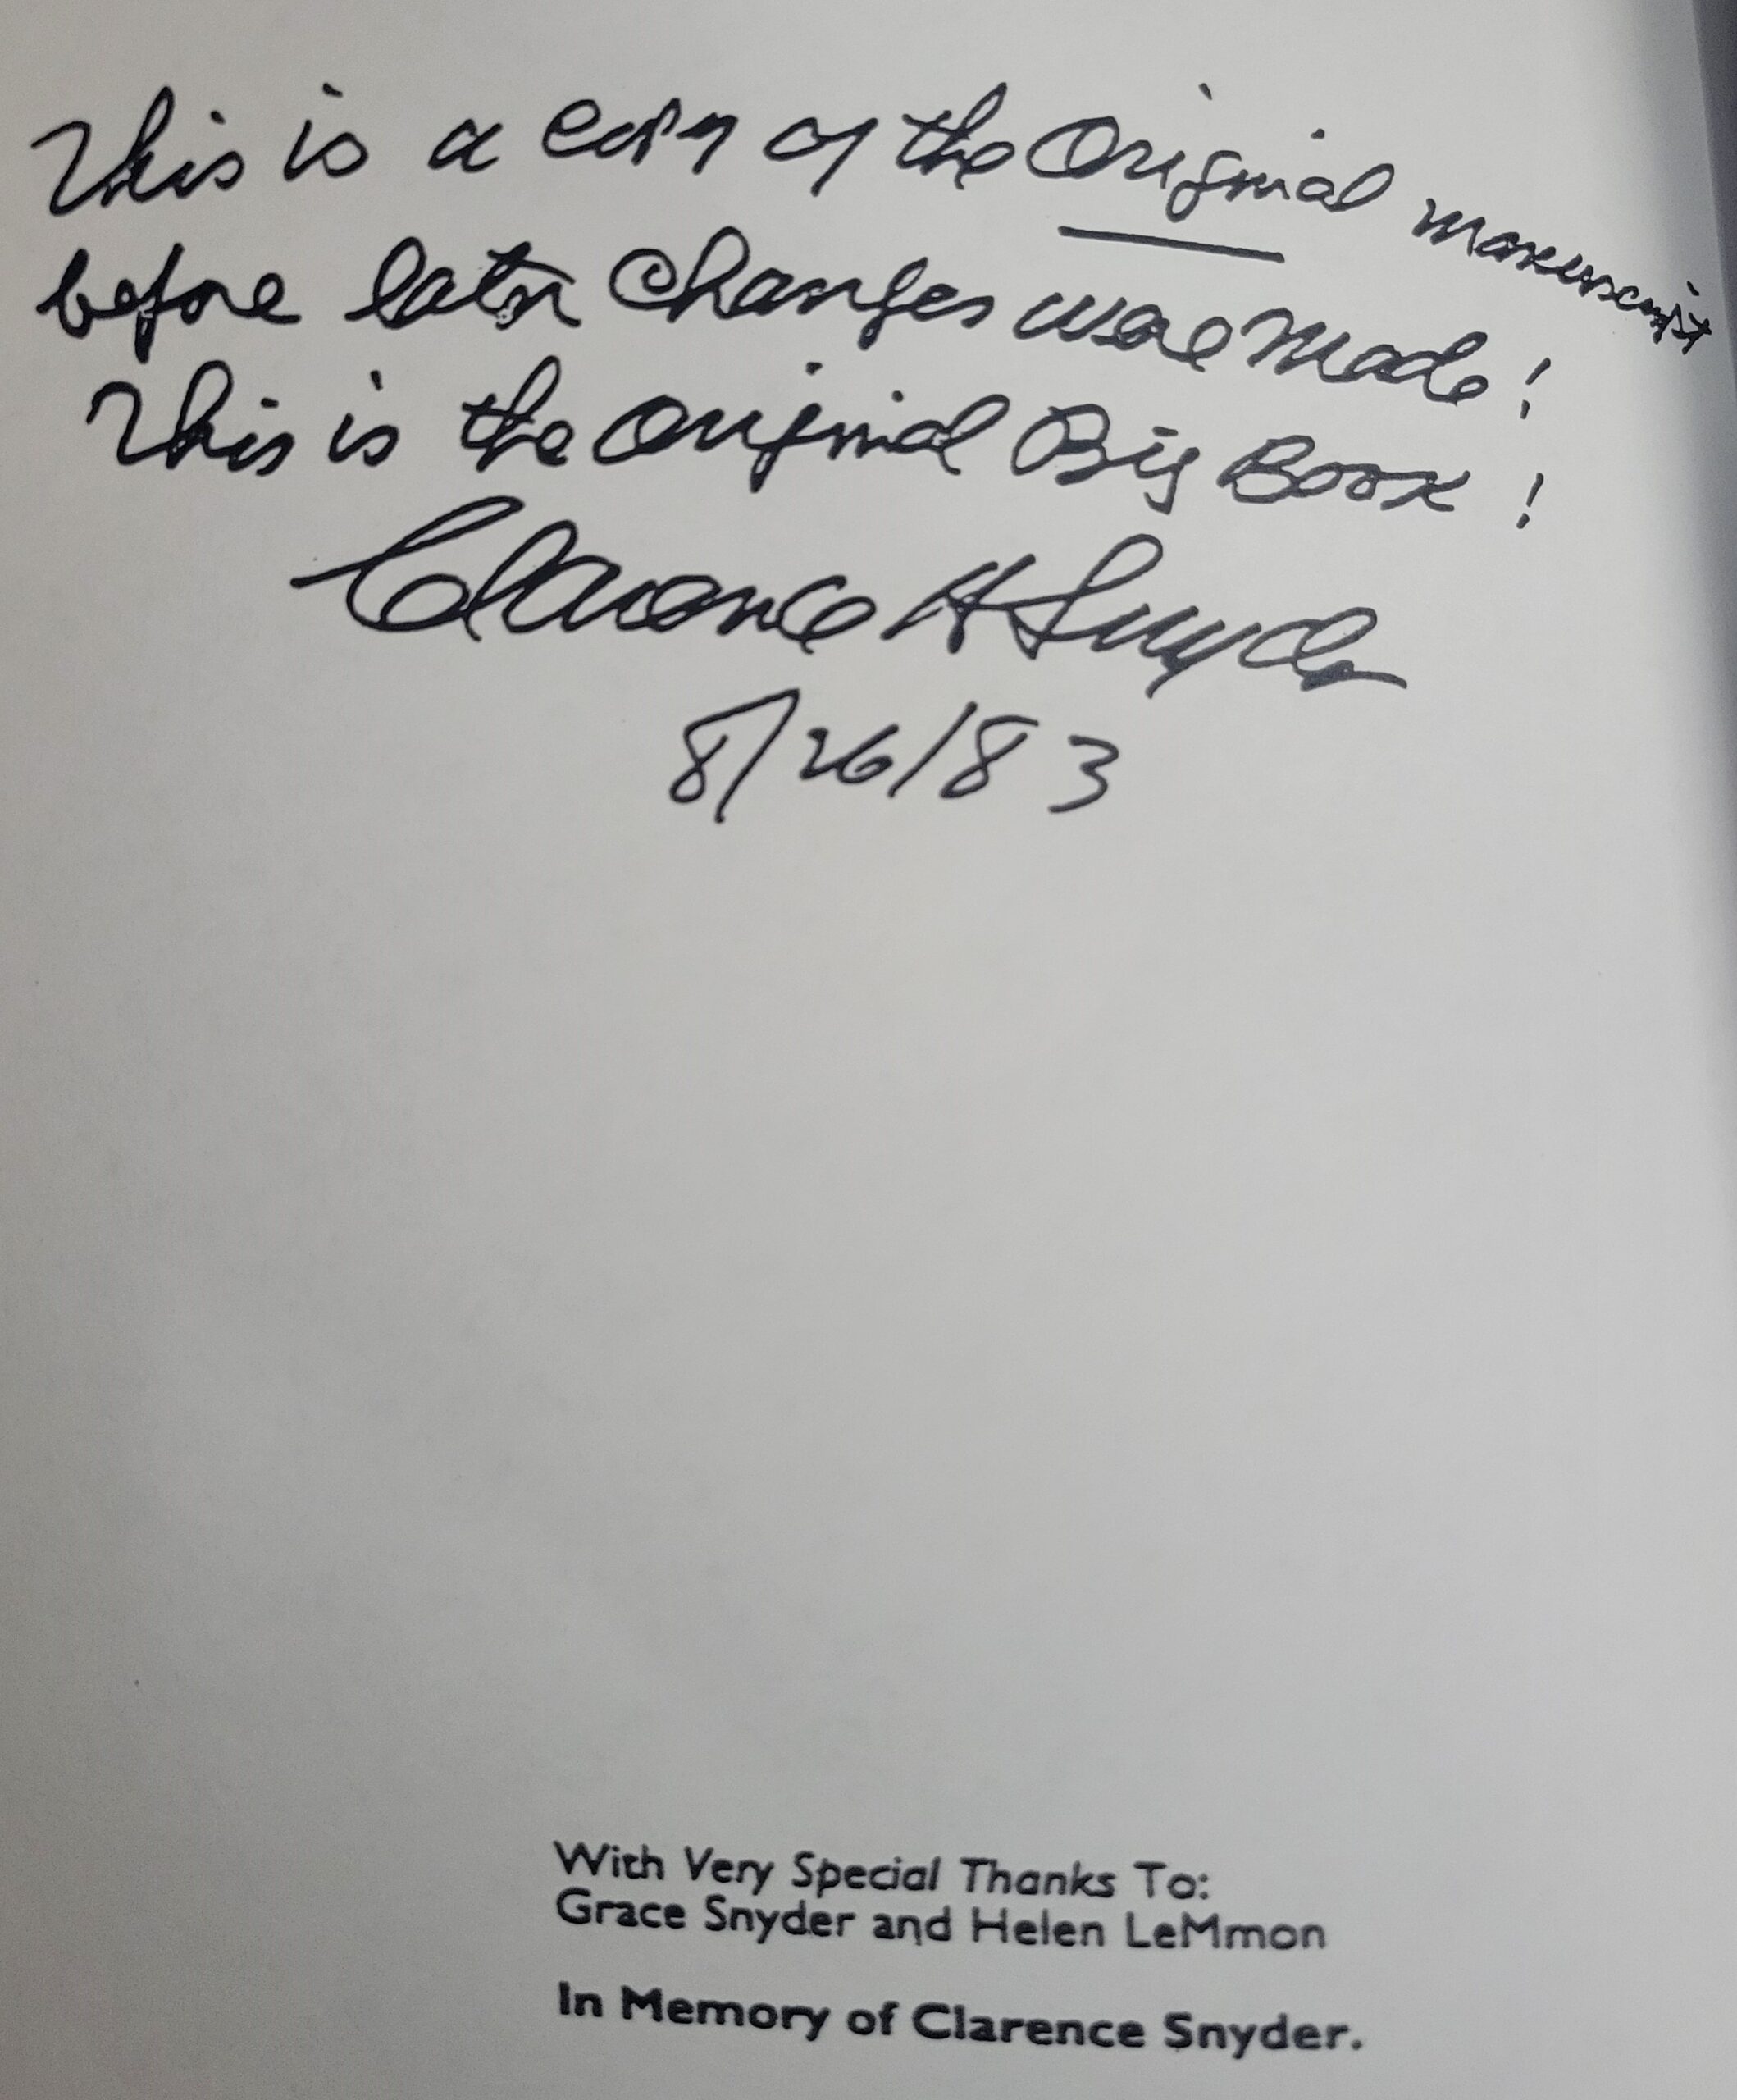 This is a copy of the Original manuscript
before later changes were made!
This is the original Big Book!
Clarence H Snyder
8/26/83
With Very Special Thanks To:
Grace Snyder and Helen LeMmon
In Memory of Clarence Snyder.